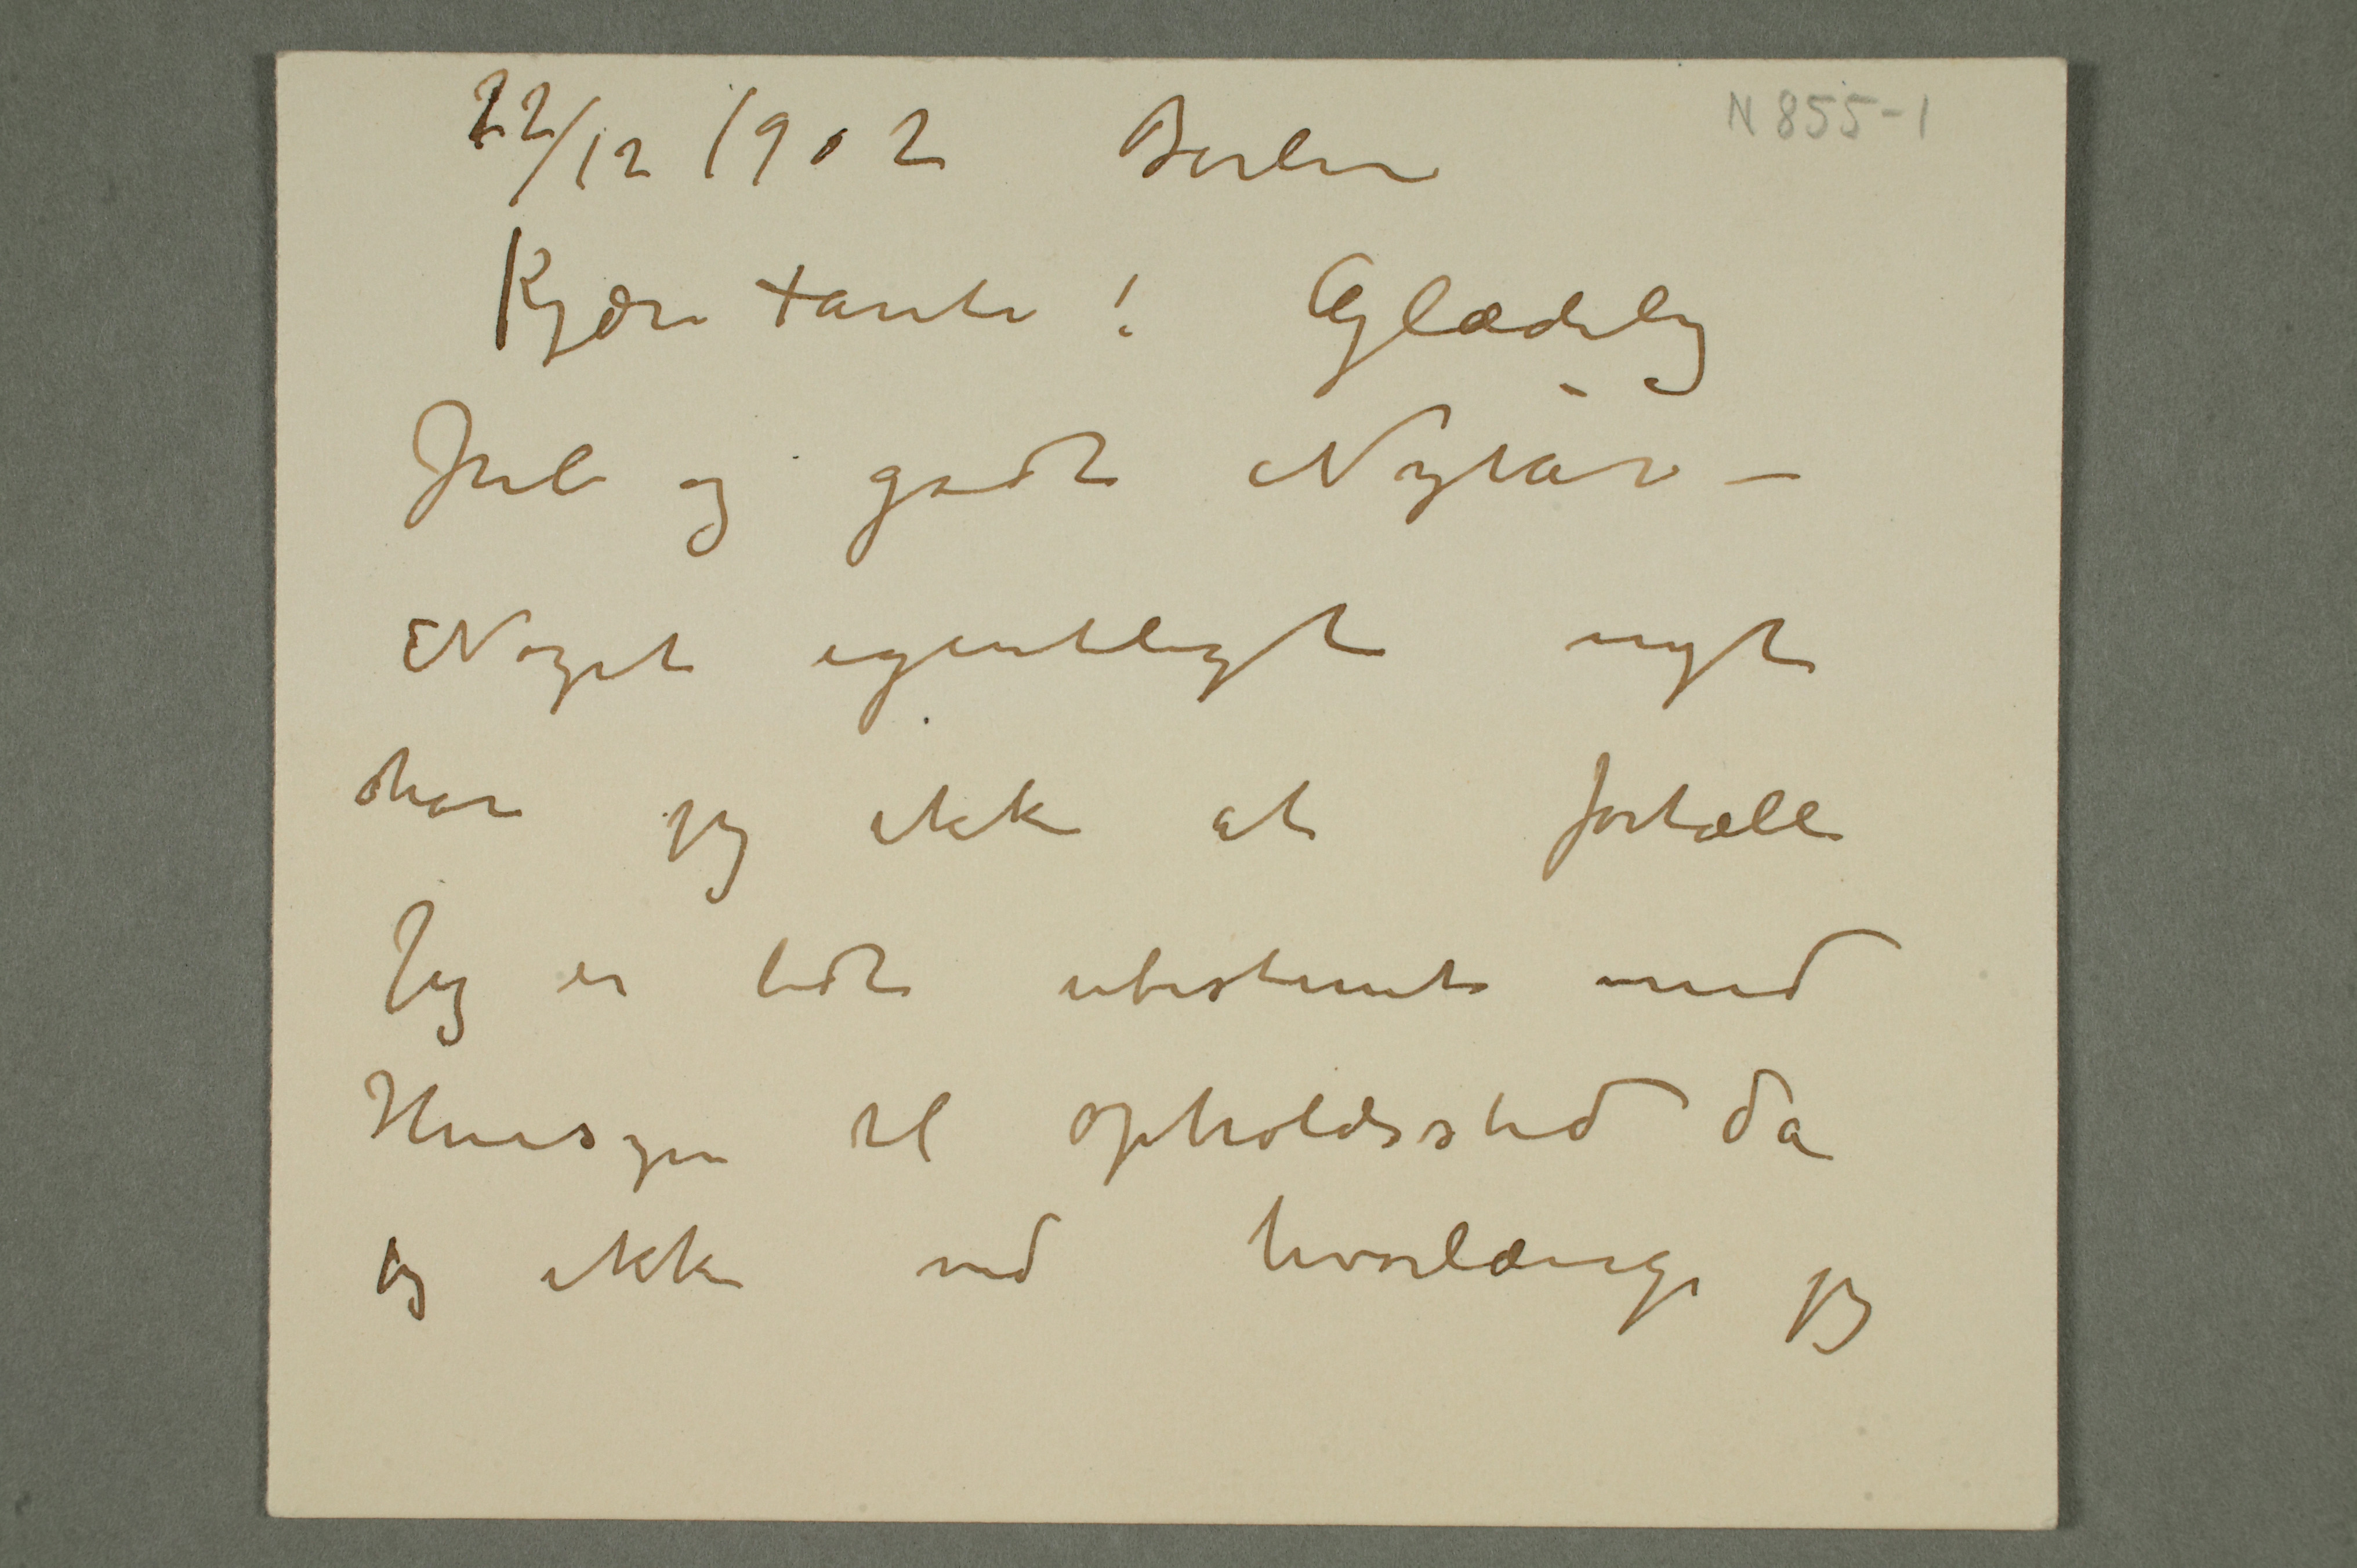 22/12 1902 Berlin
N 855-1
Kjære tante! Glædelig
Jul og godt Nytår –
Noget egentligt nyt
har jeg ikke at fortælle
Jeg er lidt ubestemt med
Hensyn til Opholdssted da
jeg ikke ved hvorlænge jeg